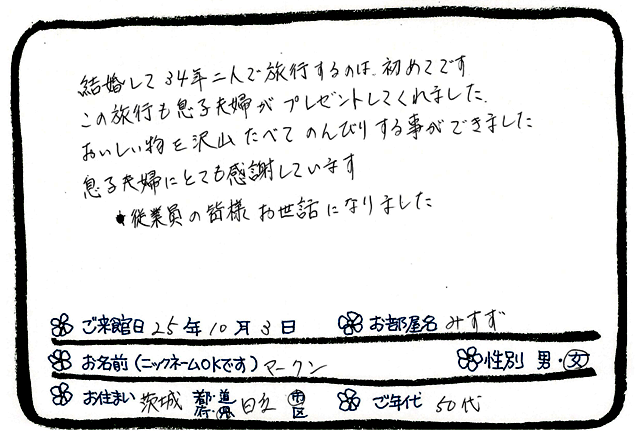 結婚して34年二人で旅行するのは、初めてです
この旅行も息子夫婦がプレゼントしてくれました、
おいしい物を沢山たべてのんびりする事ができました
息子夫婦にとても感謝しています
従業員の皆様お世話になりました
ご来館日 25年10月3日 お部屋名 みすず
お名前(ニックネームOKです) マークン 性別 男・女
お住まい 茨城 都・道府・県 日立 市区 ご年代 50代